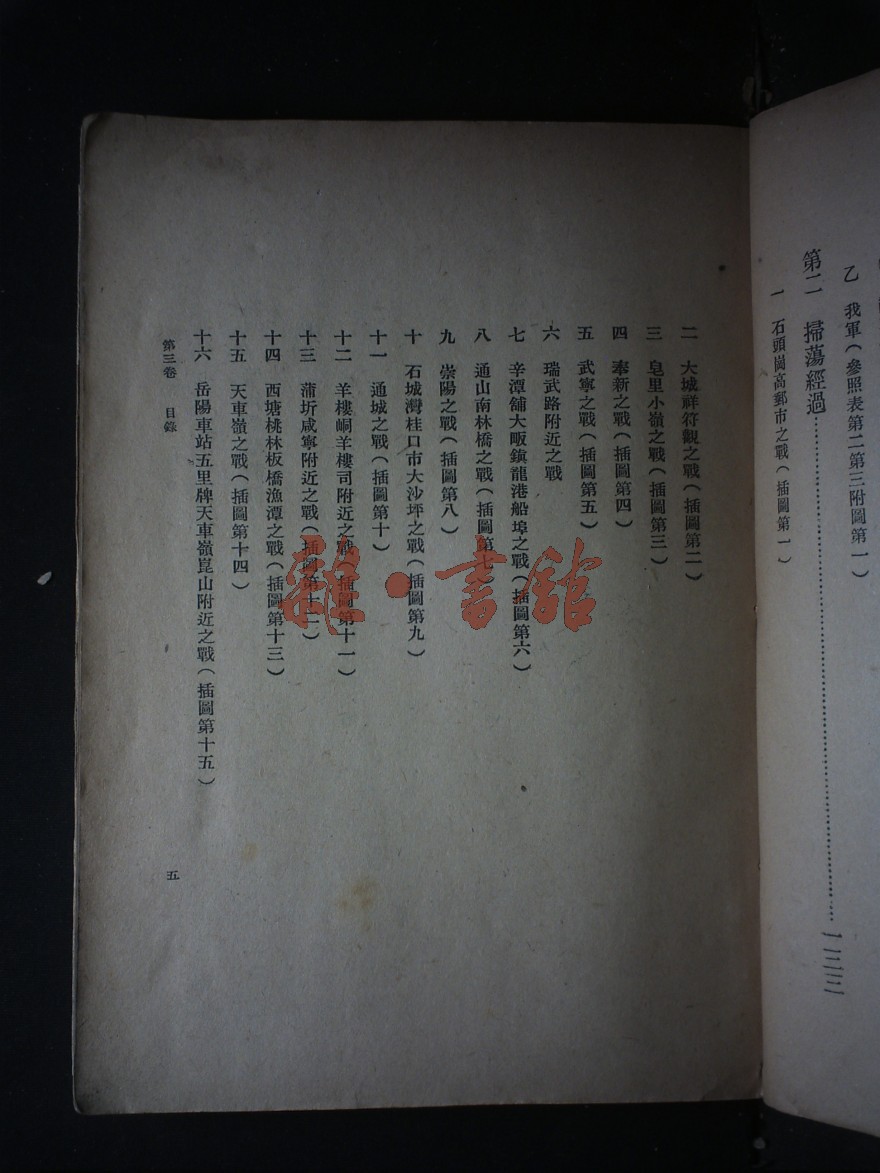 乙　我軍（參照表第二第三附圖第一）
第二　掃蕩經過………………………一二三
一　石頭崗高郵市之戰（插圖第一）
二　大城祥符觀之戰（插圖第二）
三　皂里小嶺之戰（插圖第三）
四　奉新之戰（插圖第四）
五　武寧之戰（插圖第五）
六　瑞武路附近之戰
七　辛潭舖大畈鎮龍港船埠之戰（插圖第六）
八　通山南林橋之戰（插圖第七）
九　崇陽之戰（插圖第八）
十　石城灣桂口市大沙坪之戰（插圖第九）
十一　通城之戰（插圖第十）
十二　羊樓峒羊樓司附近之戰（插圖第十一）
十三　蒲圻咸寧附近之戰（插圖第十二）
十四　西塘桃林板橋漁潭之戰（插圖第十三）
十五　天車嶺之戰（插圖第十四）
十六　岳陽車站五里牌天車嶺崑山附近之戰（插圖第十五）
第三卷　目錄
五
雜·書館